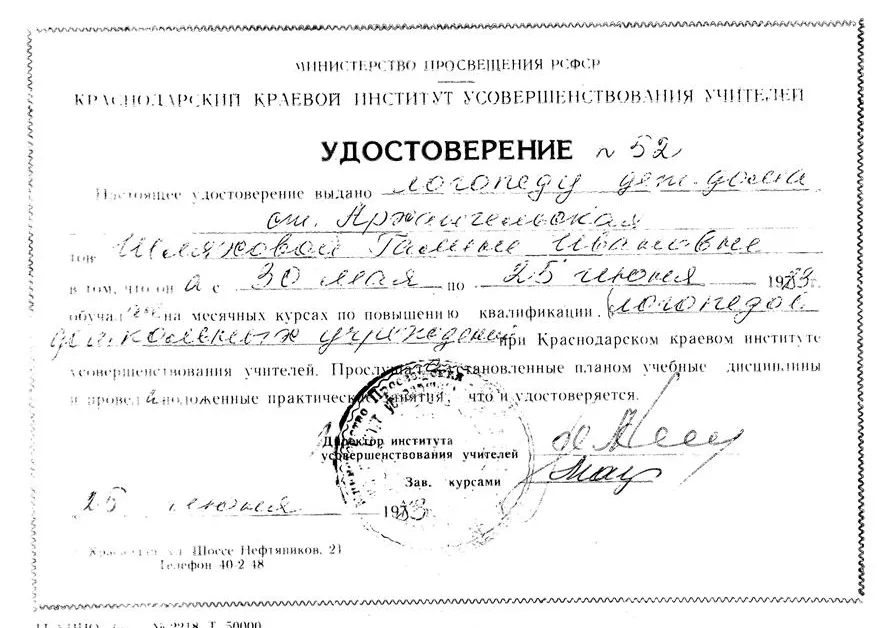 МИНИСТЕРСТВО ПРОСВЕЩЕНИЯ РСФСР
КРАСНОДАРСКИЙ КРАЕВОЙ ИНСТИТУТ УСОВЕРШЕНСТВОВАНИЯ УЧИТЕЛЕЙ
УДОСТОВЕРЕНИЕ № 52
Настоящее удостоверение выдано логопеду дет. дома
ст. Архангельская
тов Шляховой Галине Ивановне
в том, что он а с 30 мая по 25 июня 1983 г.
обучалась на месячных курсах по повышению квалификации. логопедов
дошкольных учреждений при Краснодарском краевом институте
усовершенствования учителей. Прослушала установленные планом учебные дисциплины
и провела положенные практические занятия, что и удостоверяется.
Директор института
усовершенствования учителей
Зав. курсами
25 июня 1983
Краснодар ул Шоссе Нефтяников, 21
Телефон 40-2-48
№ 2218 Т. 50000